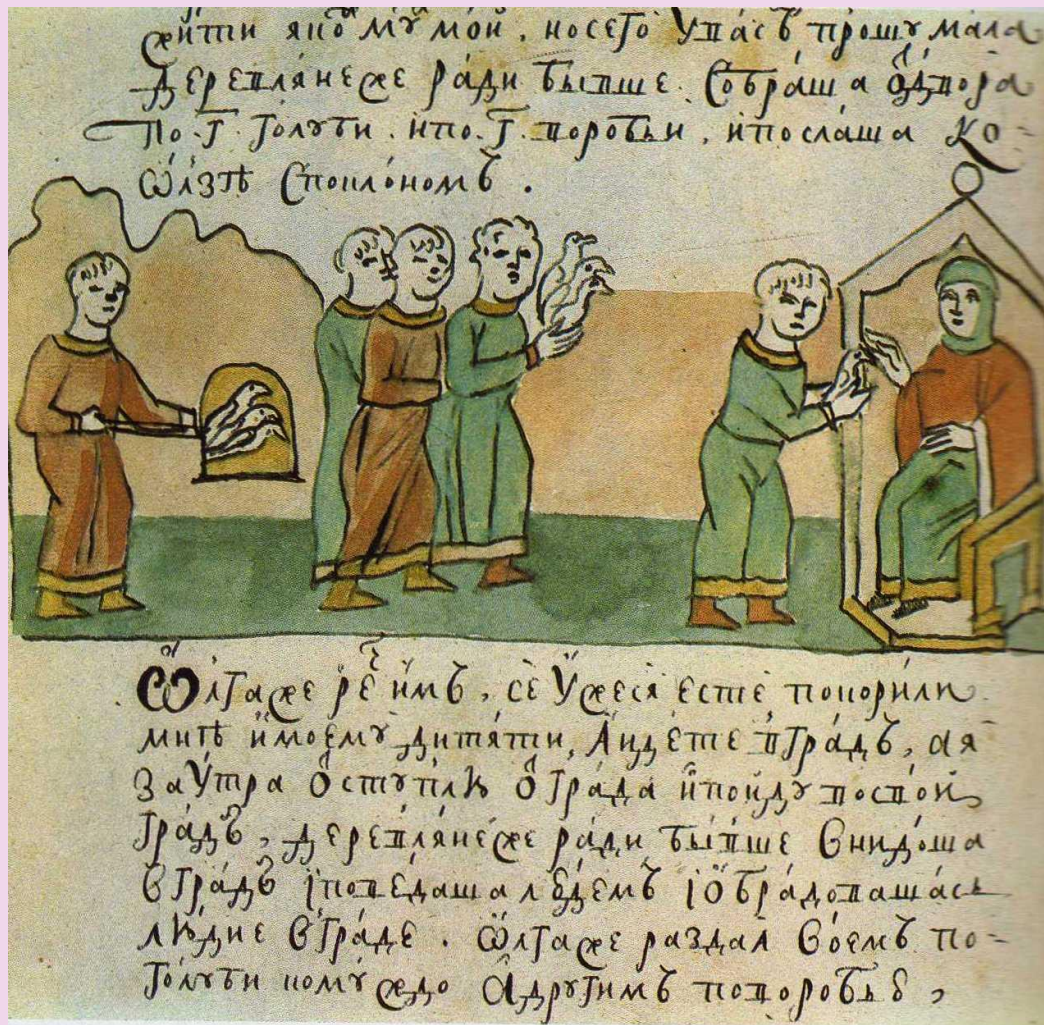 жити якѡ мꙋ́ мо́й , но сегѡ̀ ᲂу҆ па́съ прошꙋ̀ мала
деревлѧнеже ра́ди бывше . Собра́ша ѿ двора
по г҃ голуби . и по г҃ воробьи , и посла́ша ко
ѡ́лзѣ споклономъ .
Ѡ҆лга же речѐ и҆мъ , сѐ ᲂу҆́жесѧ естѐ покори́ли
мнѣ и҆ моемꙋ̀ дитѧти , А идѐте въ гра́дъ , а я
заᲂу҆́тра ѿстꙋплю ѿ гра́да и҆ пойдꙋ во свой
гра́дъ , деревлѧне же ра́ди бывше внидо́ша
в гра́дъ і пове́даша людемъ і ѡ҆бра́довашасѧ
лю́дие в гра́де . Ѡ҆лга же раздаѧ воемъ по
голуби комꙋждо а҆ другимъ поворобьѣ ,